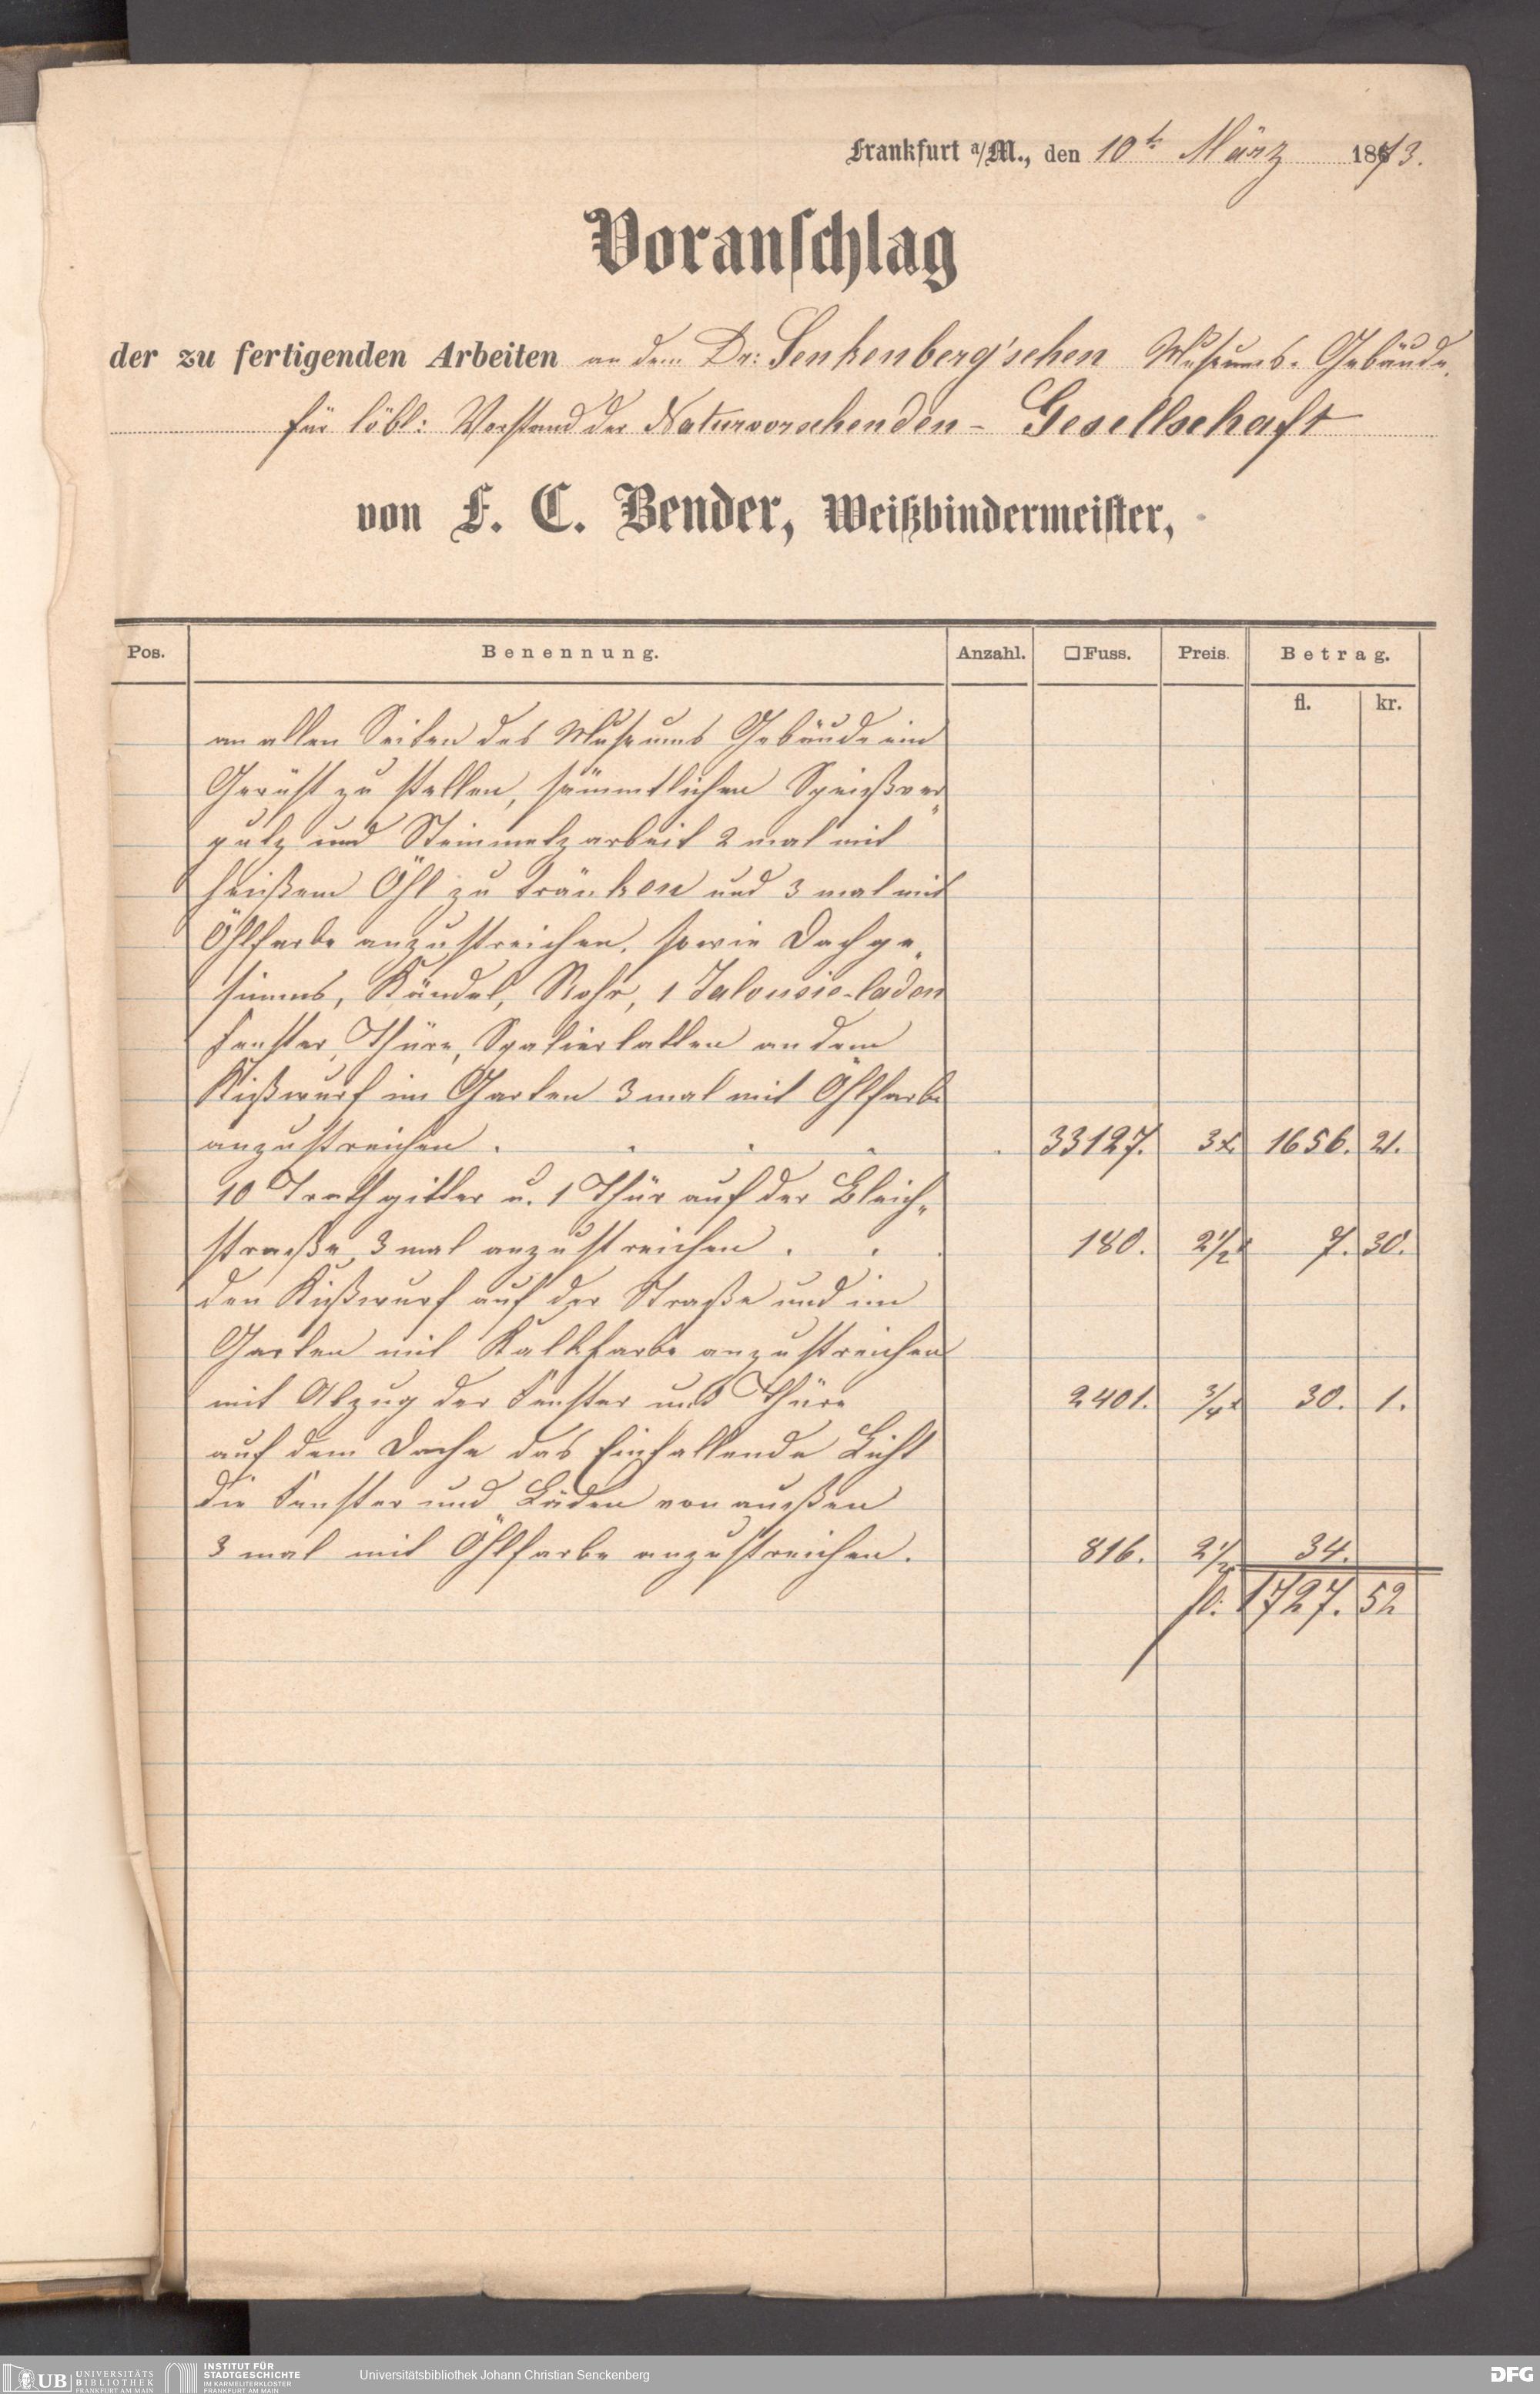 Frankfurt a/M., den 10t März 1873.
Voranschlag
der zu fertigenden Arbeiten an dem Dr: Senkenberg'schen Museums-Gebäude
für löbl: Vorstand der Naturvorschenden- Gesellschaft
von F. C. Bender, Weißbindermeister,
Pos. Benennung. Anzahl. □Fuss. Preis. Betrag.
fl. kr.
an allen Seiten des Museums Gebäude ein
Gerüst zu stellen, sämmtlichen Speisßver„
putz und Steinmetzarbeit 2 mal mit
heißem Öhl zu tränken und 3 mal mit
Öhlfarbe anzustreichen. sowie Dachge„
simms, Kändel, Rohr, 1 Jalousie-laden
Fenster, Thüre, Spalierlatten an dem
Kißwurf im Garten 3 mal mit Öhlfarbe
anzustreichen . . . . . 33127. 3x 1656. 21.
10 Trathgitter u. 1 Thür auf der Bleich„
straße, 3 mal anzustreichen . . . 180. 2½x 7. 30.
den Kißwurf auf der Straße und im
Garten mit Kalkfarbe anzustreichen
mit Abzug der Fenster und Thüre 2401. ¾x 30. 1.
auf dem Dache das Einfallende Licht
die Fenster und Läden von außen
3 mal mit Öhlfarbe anzustreichen. 816. 2½ 34.
fl: 1727. 52
UB UNIVERSITÄTS
BIBLIOTHEK
FRANKFURT AM MAIN
INSTITUT FÜR
STADTGESCHICHTE
IM KARMELITERKLOSTER
FRANKFURT AM MAIN
Universitätsbibliothek Johann Christian Senckenberg
DFG